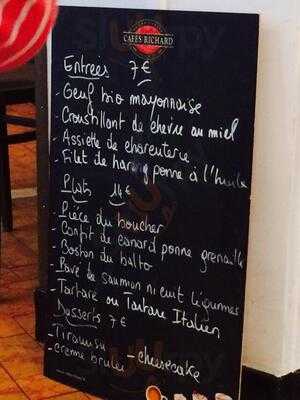 CAFÉS RICHARD
Entrees 7€
- Oeuf bio mayonnaise
- Croustillant de chevre au miel
- Assiette de charcuterie
- Filet de hareng pomme à l'huile
Plats 14€
- Pièce du boucher
- Confit de canard pomme grenaille
- Boston du balto
- Pavé de saumon mi cuit légumes
- Tartare ou Tartare Italien
Desserts 7€
- Tiramisu
- creme brulee - cheesecake